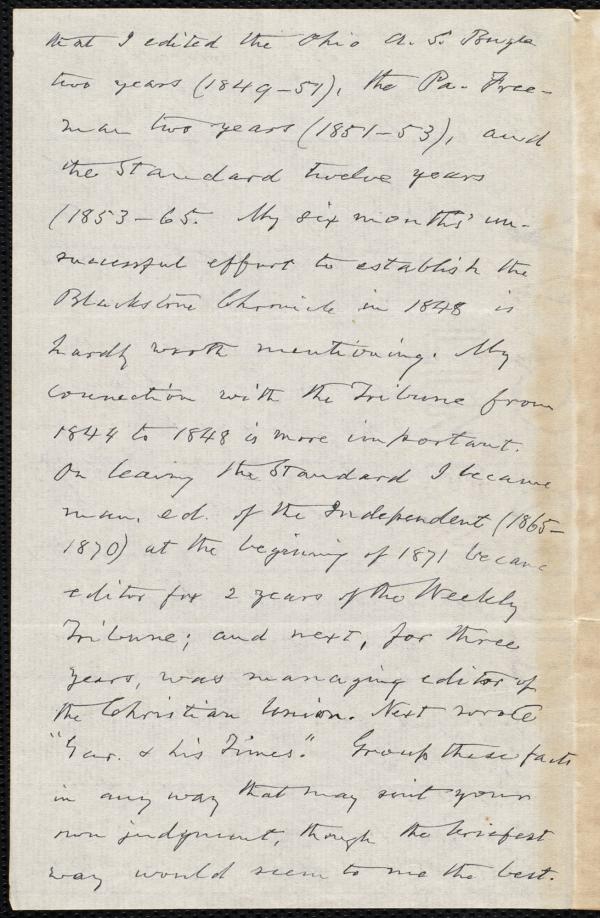 that I edited the Ohio A. S. Bugle
two years (1849–51), the Pa. Free-
man two years (1851–53), and
the Standard twelve years
(1853–65. My six months' un-
successful effort to establish the
Blackstone Chronicle in 1848 is
hardly worth mentioning. My
connection with the Tribune from
1844 to 1848 is more important.
On leaving the Standard I became
man. ed. of the Independent (1865–
1870) at the beginning of 1871 became
editor for 2 years of the Weekly
Tribune; and next, for three
years, was managing editor of
the Christian Union. Next wrote
"Gar. & his Times." Group these facts
in any way that may suit your
own judgment, though the briefest
way would seem to me the best.